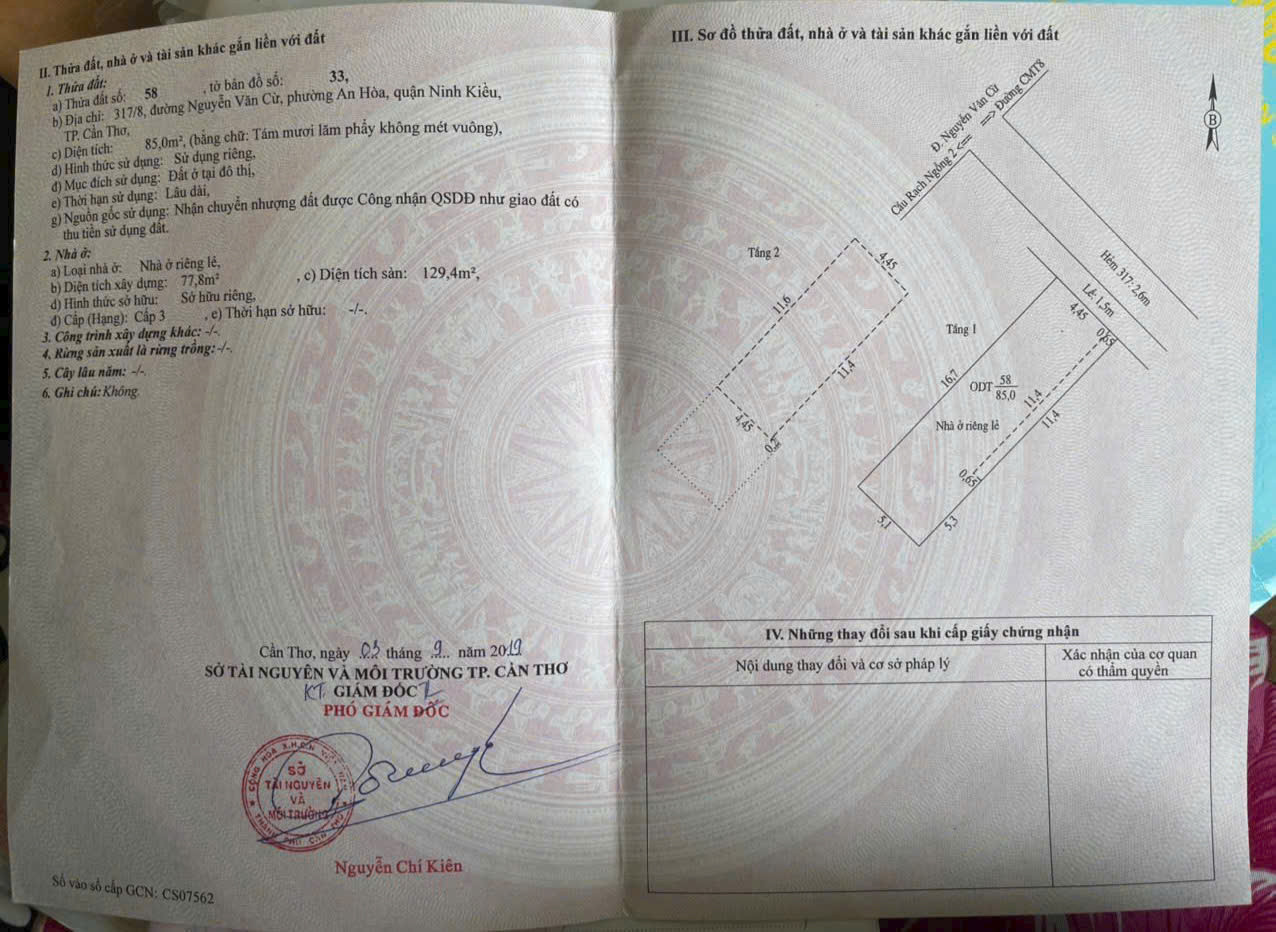 II. Thửa đất, nhà ở và tài sản khác gắn liền với đất
1. Thửa đất:
a) Thửa đất số: 58 , tờ bản đồ số: 33,
b) Địa chỉ: 317/8, đường Nguyễn Văn Cừ, phường An Hòa, quận Ninh Kiều,
TP. Cần Thơ,
c) Diện tích: 85,0m², (bằng chữ: Tám mươi lăm phẩy không mét vuông),
d) Hình thức sử dụng: Sử dụng riêng,
đ) Mục đích sử dụng: Đất ở tại đô thị,
e) Thời hạn sử dụng: Lâu dài,
g) Nguồn gốc sử dụng: Nhận chuyển nhượng đất được Công nhận QSDĐ như giao đất có
thu tiền sử dụng đất.
2. Nhà ở:
a) Loại nhà ở: Nhà ở riêng lẻ,
b) Diện tích xây dựng: 77,8m² , c) Diện tích sàn: 129,4m²,
d) Hình thức sở hữu: Sở hữu riêng,
đ) Cấp (Hạng): Cấp 3 , e) Thời hạn sở hữu: -/-.
3. Công trình xây dựng khác: -/-.
4. Rừng sản xuất là rừng trồng: -/-.
5. Cây lâu năm: -/-.
6. Ghi chú: Không.
Cần Thơ, ngày 03 tháng 9 năm 2019
SỞ TÀI NGUYÊN VÀ MÔI TRƯỜNG TP. CẦN THƠ
KT. GIÁM ĐỐC
PHÓ GIÁM ĐỐC
SỞ
TÀI NGUYÊN
VÀ
MÔI TRƯỜNG
Nguyễn Chí Kiên
Số vào sổ cấp GCN: CS07562
III. Sơ đồ thửa đất, nhà ở và tài sản khác gắn liền với đất
Đ. Nguyễn Văn Cừ
Cầu Rạch Ngỗng 2 <== ==> Đường CMT8
B
Hẻm 317: 2,6m
Lề: 1,5m
Tầng 2
4,45
11,6
11,4
4,45
0,2
Tầng 1
4,45
0,65
16,7
ODT 58
85,0
11,4
11,4
Nhà ở riêng lẻ
0,65
5,1
5,3
IV. Những thay đổi sau khi cấp giấy chứng nhận
Nội dung thay đổi và cơ sở pháp lý
Xác nhận của cơ quan
có thẩm quyền